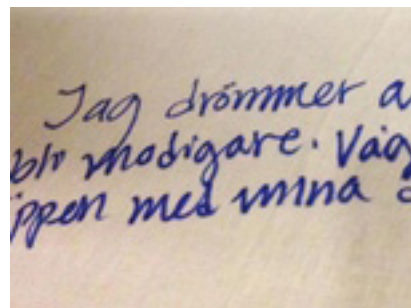 Jag drömmer a
bli modigare. Våg
ppen med mina